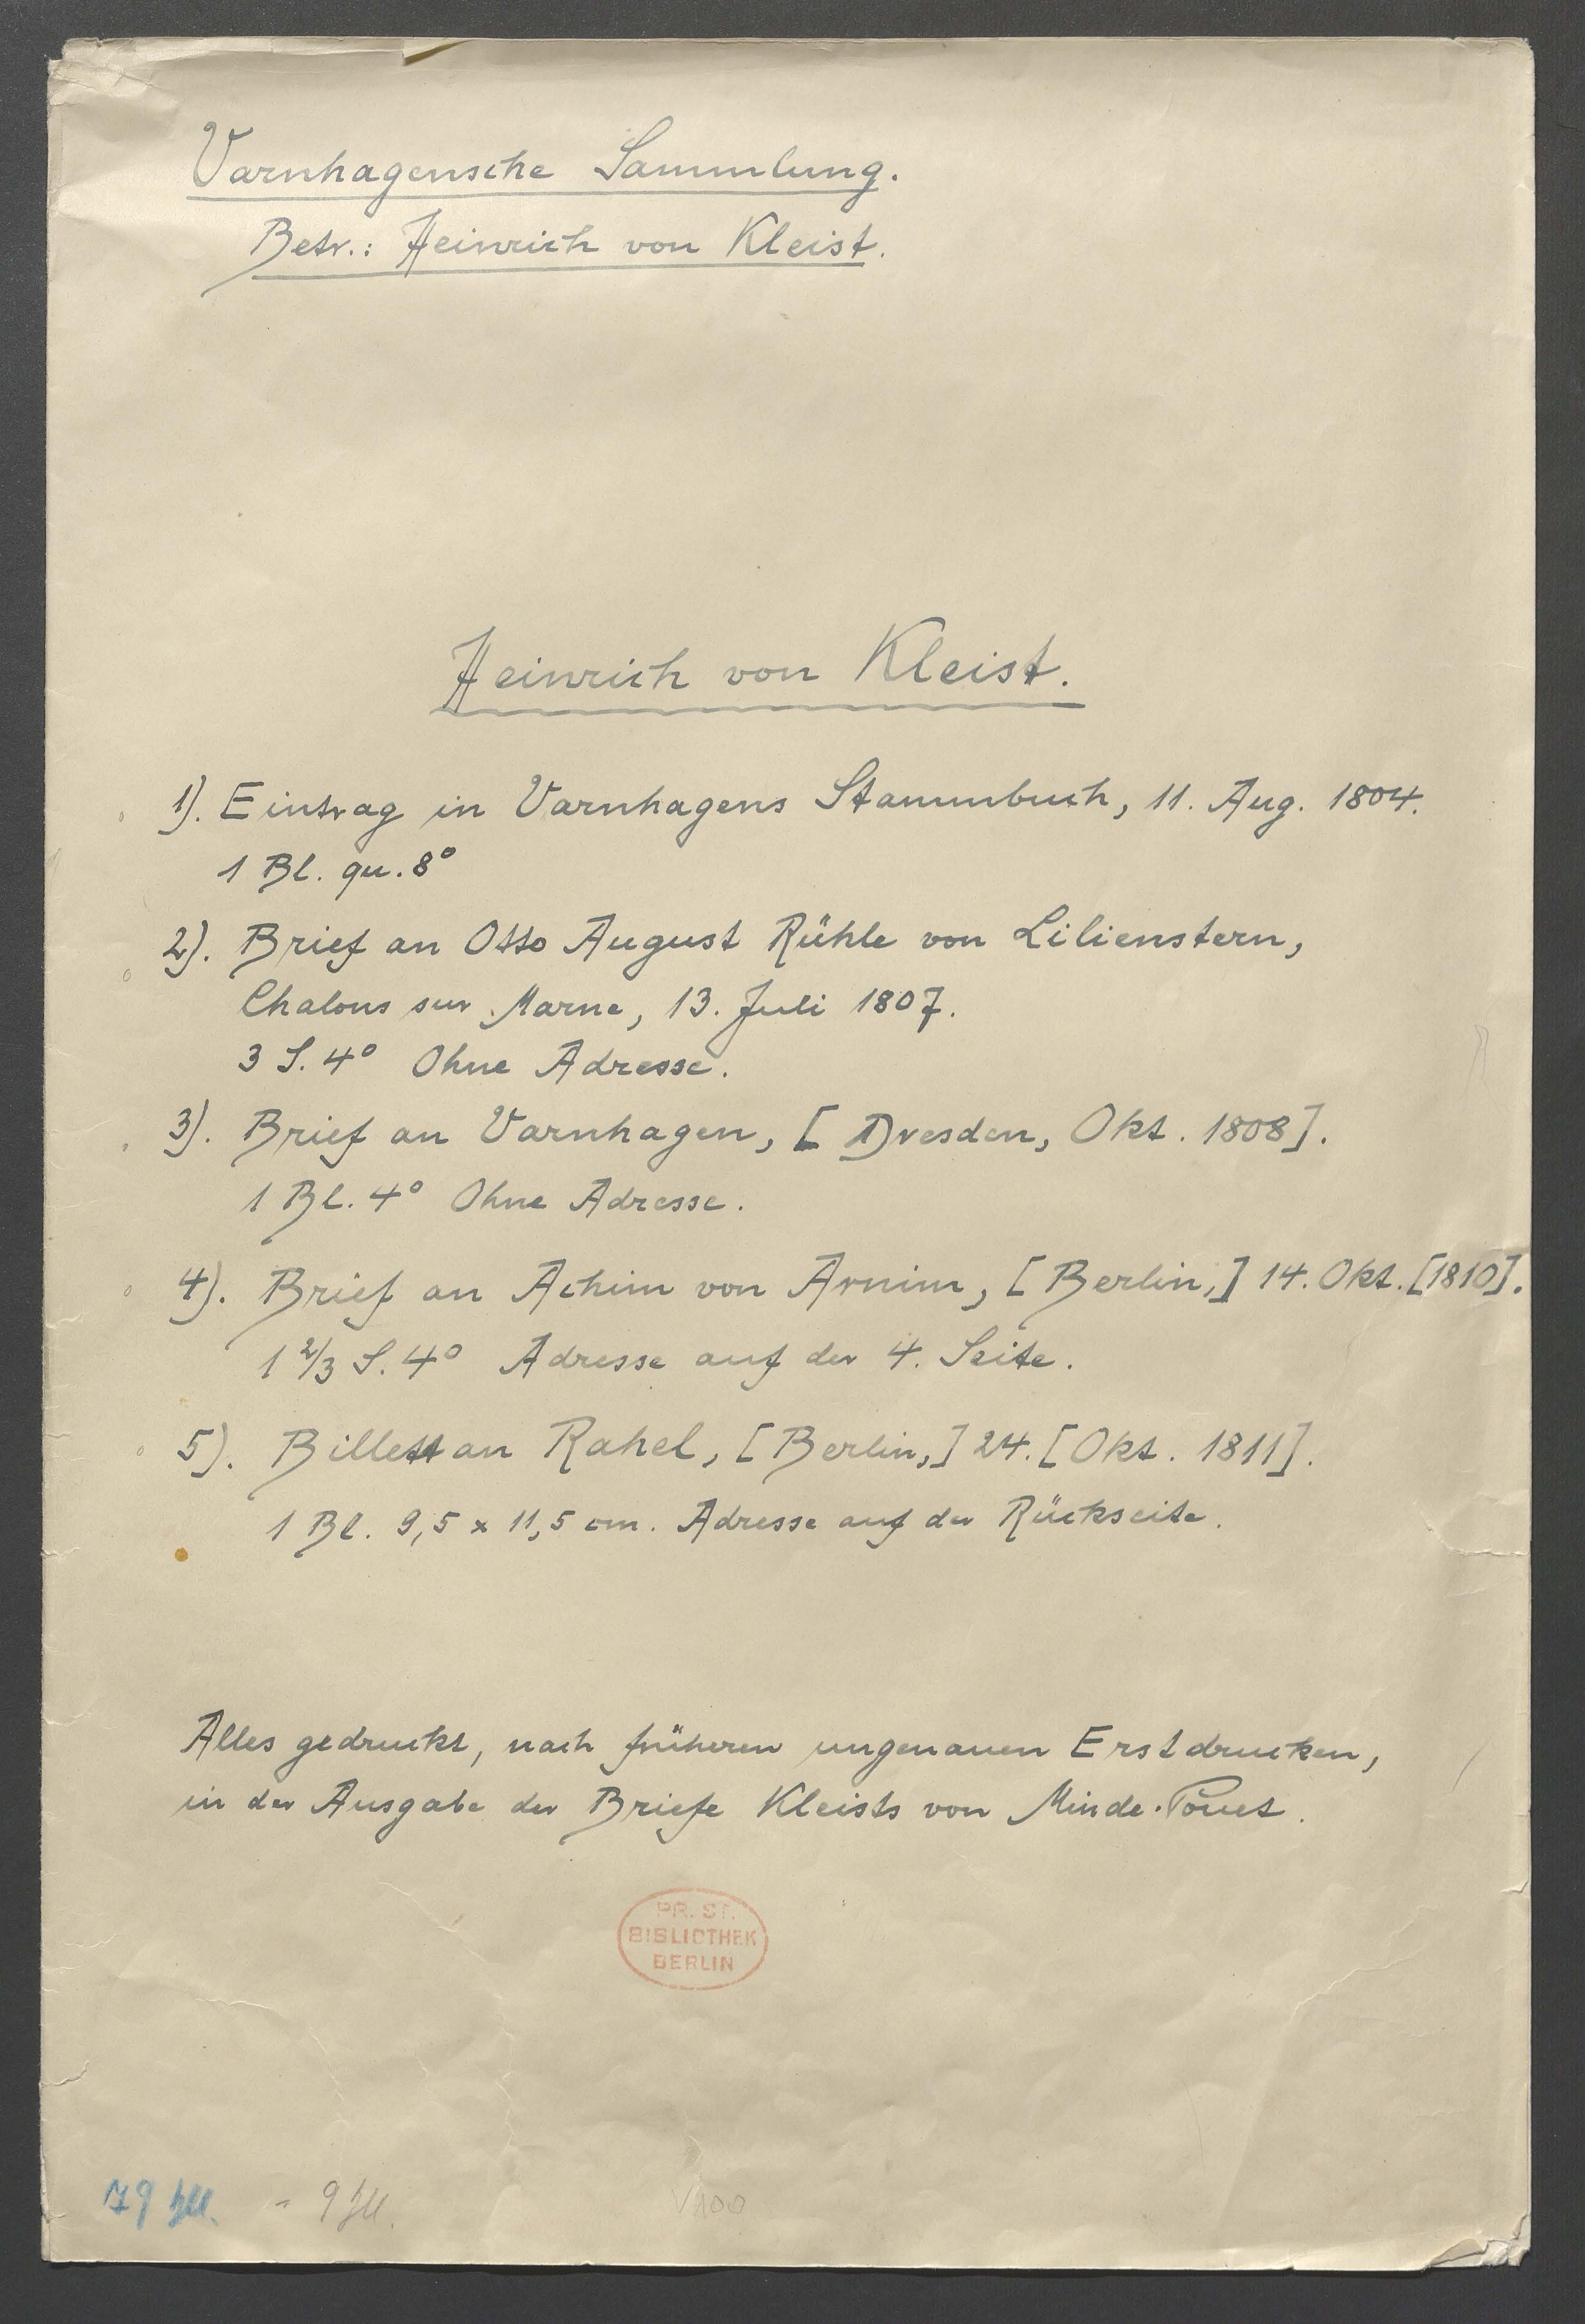 Varnhagensche Sammlung.
Betr.: Heinrich von Kleist.
Heinrich von Kleist.
1). Eintrag in Varnhagens Stammbuch, 11. Aug. 1804.
1 Bl. qu. 8°
2). Brief an Otto August Rühle von Lilienstern,
Chalons sur Marne, 13. Juli 1807.
3 S. 4° Ohne Adresse.
3). Brief an Varnhagen, [Dresden, Okt. 1808].
1 Bl. 4° Ohne Adresse.
4). Brief an Achim von Arnim, [Berlin,] 14. Okt. [1810].
1 2/3 S. 4° Adresse auf der 4. Seite.
5). Billett an Rahel, [Berlin,] 24. [Okt. 1811].
1 Bl. 9,5 x 11,5 cm. Adresse auf der Rückseite.
Alles gedruckt, nach früheren ungenauen Erstdrucken,
in der Ausgabe der Briefe Kleists von Minde-Pouet.
PR. ST.
BIBLIOTHEK
BERLIN
79 Bll. = 9 Bll.